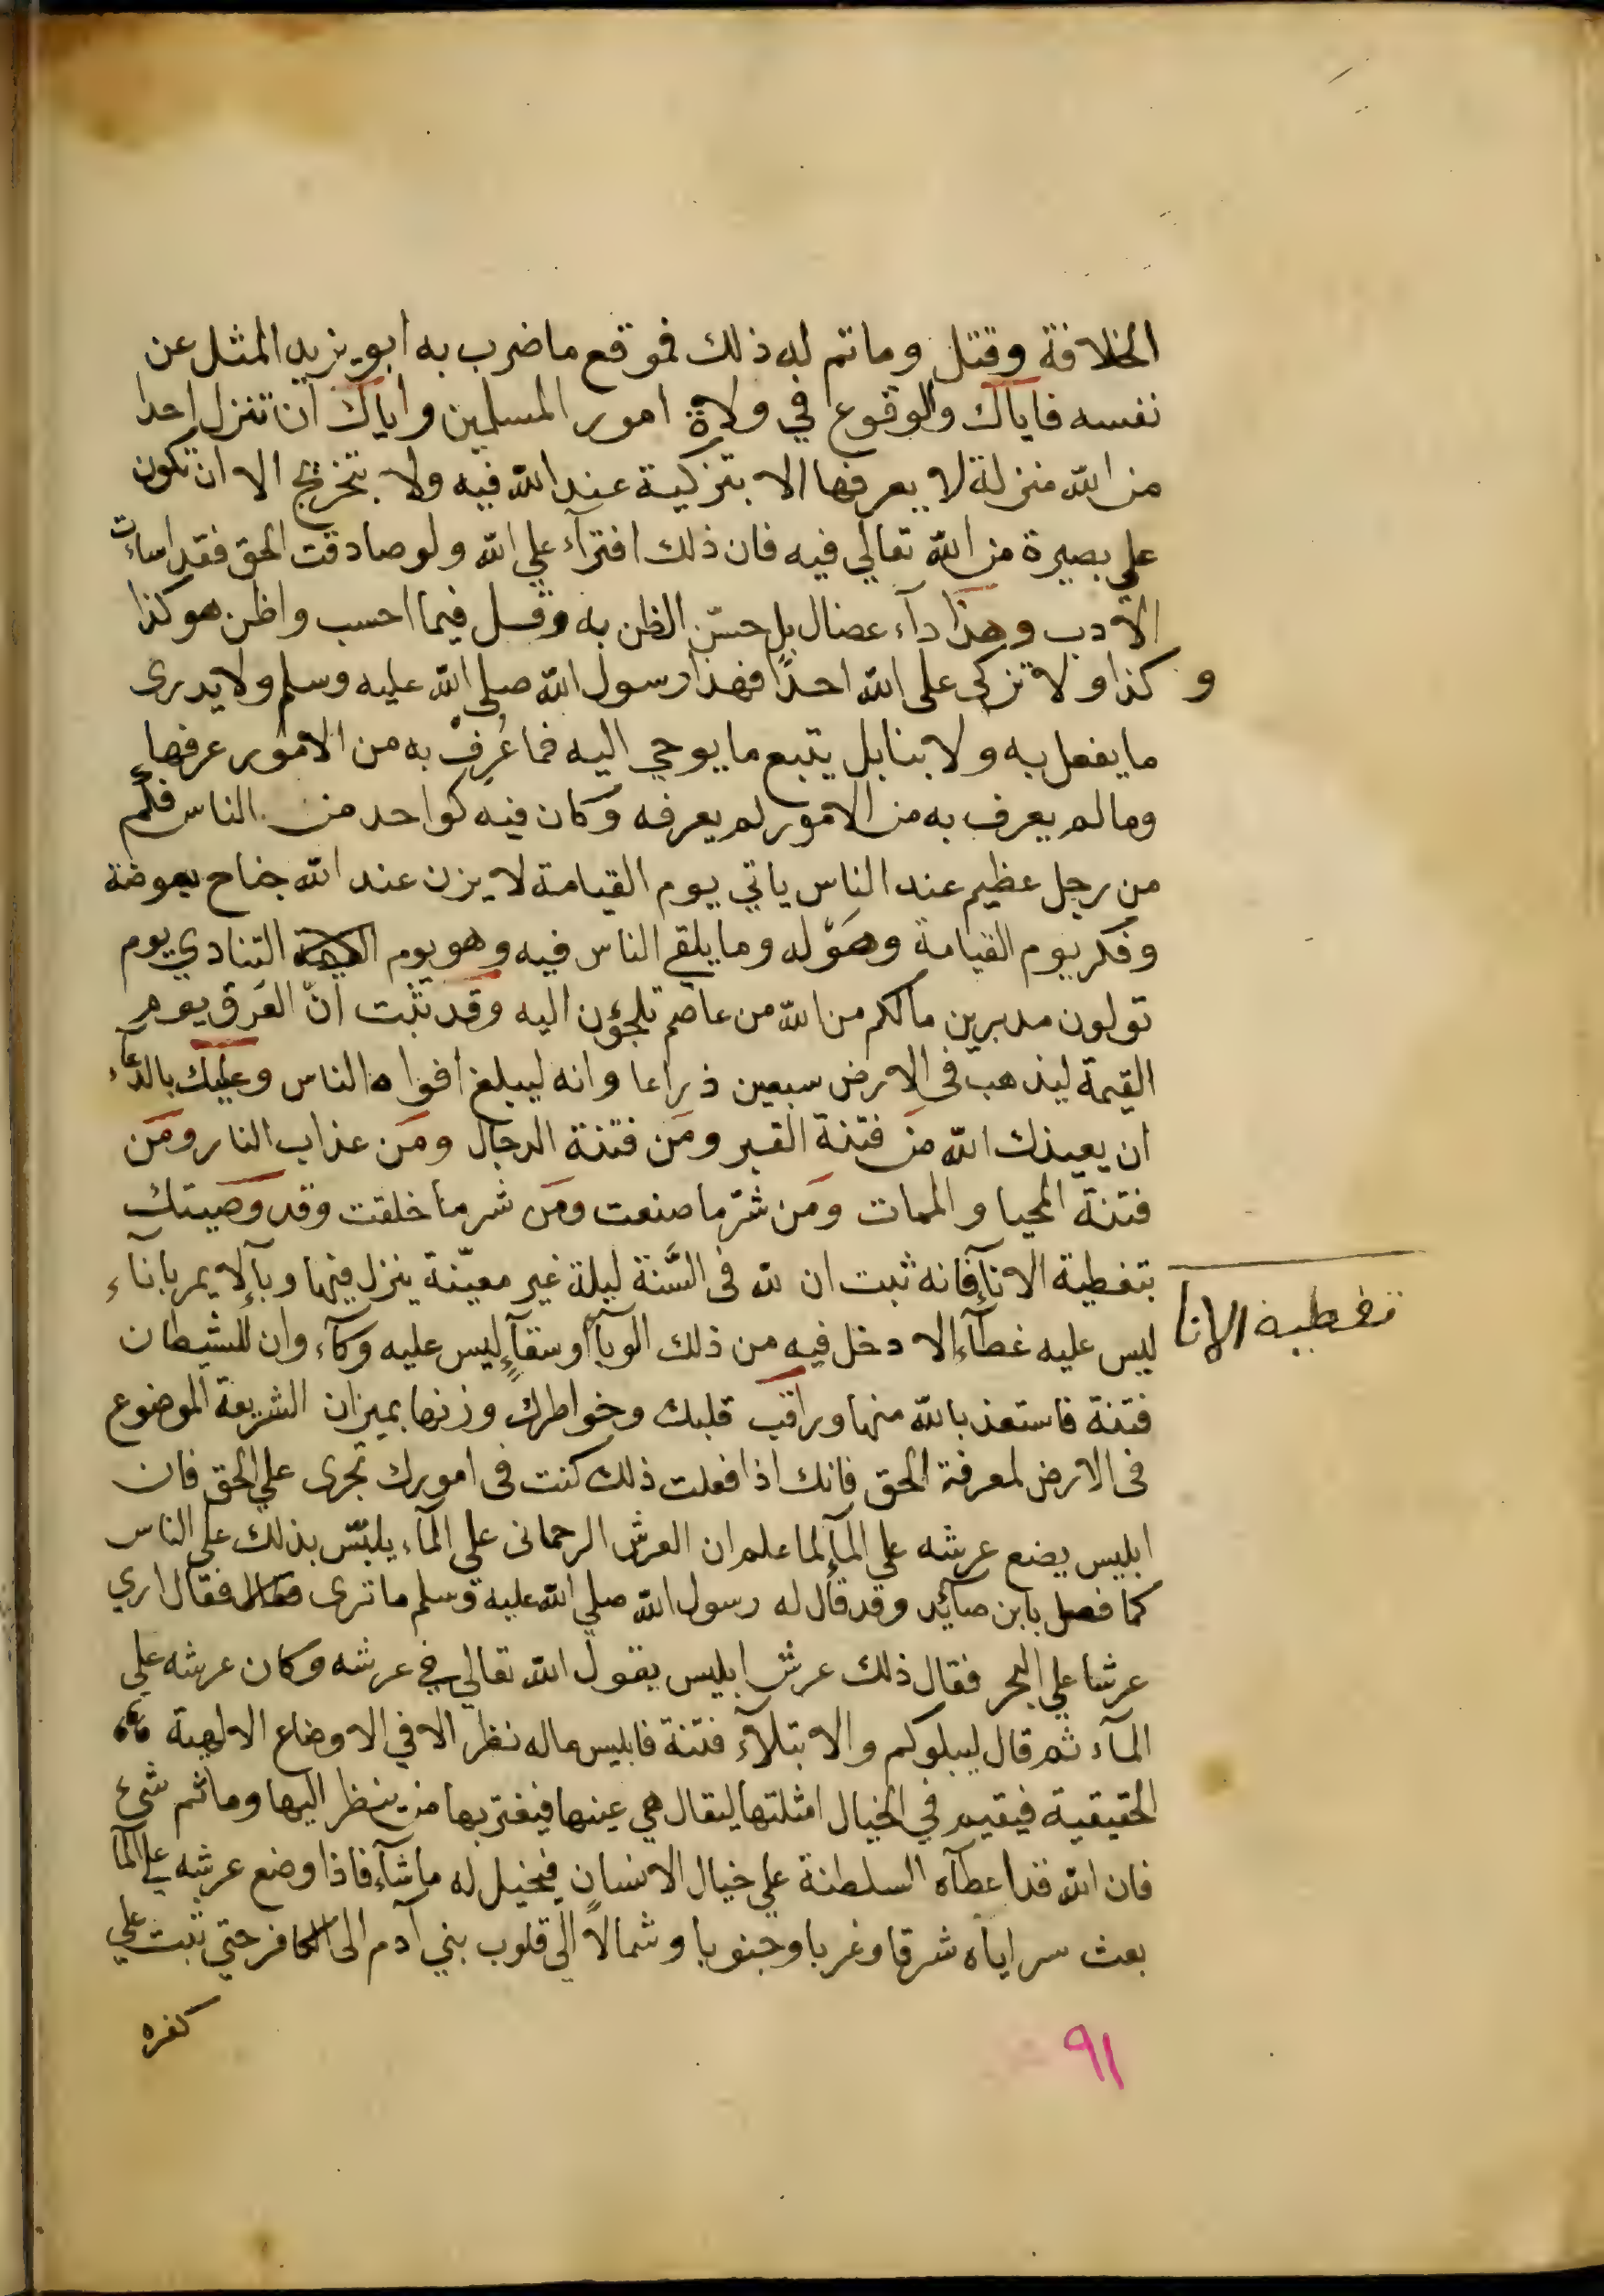 الخلافة وقتل وما تم له ذلك فموقع ما ضرب به ابو يزيد المثل عن
نفسه فاياك والوقوع في ولاة امور المسلمين واياك ان تنزل احدا
من الله منزلة لا يعرفها الا بتزكية عند الله فيه ولا بتخريج الا ان تكون
علي بصيرة من الله تعالي فيه فان ذلك افترآء علي الله ولو صادقت الحق فقد اساءت
الادب وهذا دآء عضال بل حسّن الظن به وقل فيما احسب واظن هو كذا
وكذا ولا تزكى على الله احدًا فهذا رسول الله صلى الله عليه وسلم ولا يدرى
ما يفعل به ولا بنا بل يتبع ما يوحي اليه فما عُرِفْ به من الامور عرفها
وما لم يعرف به من الامور لم يعرفه وكان فيه كواحد من الناس فكم
من رجل عظيم عند الناس ياتي يوم القيامة لا يزن عند الله جناح بعوضة
وفكر يوم القيامة وهَوْله وما يلقي الناس فيه وهو يوم التنادي يوم
تولون مدبرين مالكم من الله من عاصم تلجؤن اليه وقد ثبت انّ العَرق يوم
القيمة ليذهب في الارض سبعين ذراعا وانه ليبلغ افواه الناس وعليك بالدعآء
ان يعيذك الله من فتنة القبر ومن فتنة الدجال ومن عذاب النار ومن
فتنة المحيا والممات ومن شرّ ما صنعت ومن شر ما خلقت وقد وصيتك
بتغطية الانآء فانه ثبت ان لله في السَّنة ليلة غير معيّنة ينزل فيها وبآء لا يمر بانآء
ليس عليه غطآء الا دخل فيه من ذلك الوبآء أو سقآءٍ ليس عليه وكآء وان للشيطان
تغطية الانا
فتنة فاستعذ بالله منها وراقب قلبك وخواطرك وزنها بميزان الشريعة الموضوع
في الارض لمعرفة الحق فانك اذا فعلت ذلك كنت في امورك تجرى علي الحق فان
ابليس يضع عرشه علي المآء لما علم ان العرش الرحمانى علي المآء يلبّس بذلك علي الناس
كما فعل بابن صائد وقد قال له رسول الله صلي الله عليه وسلم ما ترى فقال اري
عرشا علي البحر فقال ذلك عرش ابليس يقول الله تعالي في عرشه وكان عرشه علي
المآء ثم قال ليبلوكم والابتلآء فتنة فابليس ماله نظر الا في الاوضاع الالهية
الحقيقية فيقيم في الخيال امثلتها ليقال هي عينها فيغتر بها من ينظر اليها وما ثم شئ
فان الله قد اعطآه السلطنة علي خيال الانسان فيخيل له ما شآء فاذا وضع عرشه علي المآ
بعث سراياه شرقا وغربا وجنوبا وشمالاً الى قلوب بني آدم الى الكافر حتي يثبت علي
كفره
٩١